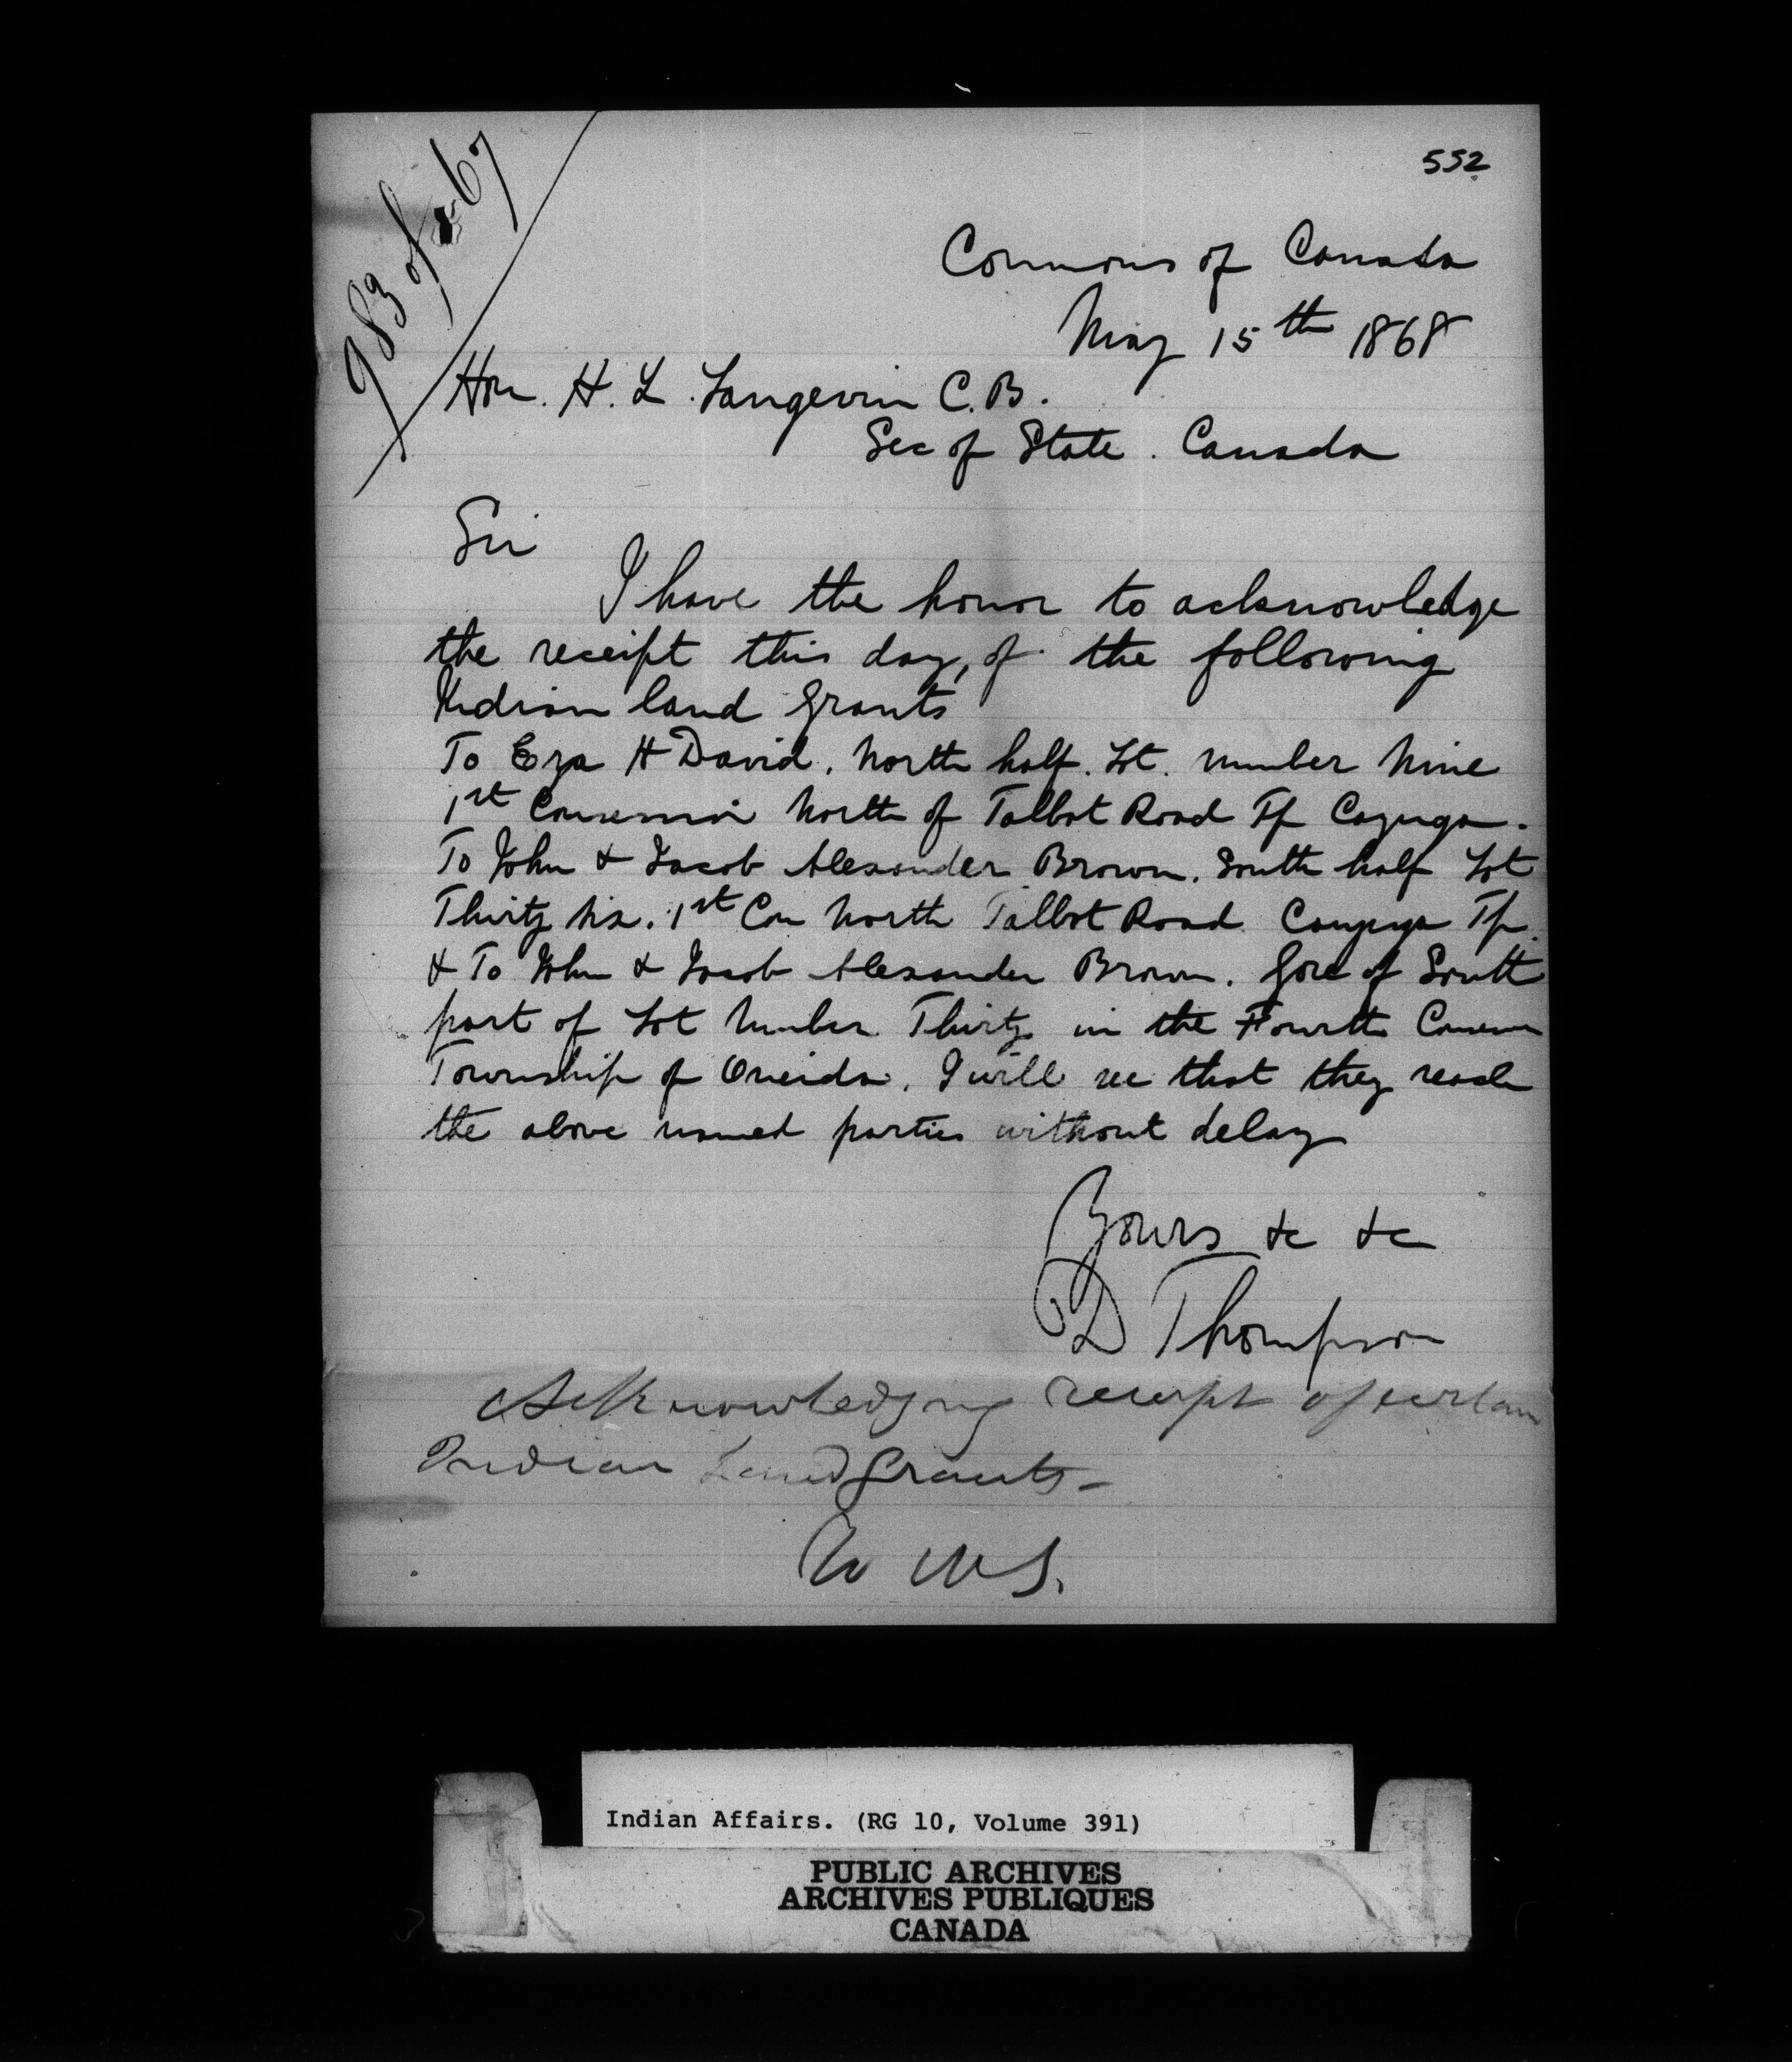 552
983 of 67
Commons of Canada
May 15th 1868
Hon. H. L. Langevin C.B.
Sec of State. Canada
Sir
I have the honor to acknowledge
the receipt this day, of the following
Indian land grants
To Eza H David. North half. Lot. number Nine
1st Concession North of Talbot Road Tp Cayuga.
To John & Jacob Alexander Brown. South half Lot
Thirty six. 1st Con North Talbot Road Cayuga Tp.
& To John & Jacob Alexander Brown. Gore of South
part of Lot Number Thirty in the Fourth Concession
Township of Oneida. I will see that they reach
the above named parties without delay
Yours &c &c
D Thompson
Acknowledging receipt of certain
Indian Land Grants -
Indian Affairs. (RG 10, Volume 391)
PUBLIC ARCHIVES
ARCHIVES PUBLIQUES
CANADA